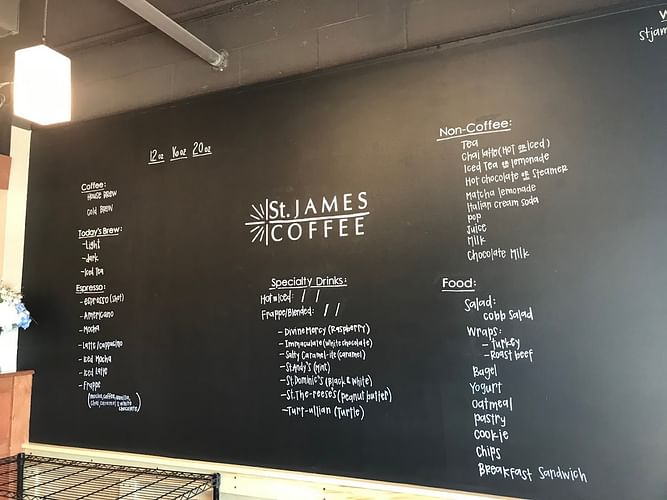 12 oz 16 oz 20 oz
Coffee:
House Brew
Cold Brew
Today's Brew:
-Light
-dark
-Iced Tea
Espresso:
- espresso (shot)
- Americano
- Mocha
- Latte/cappucino
- Iced Mocha
- Iced Latte
- Frappe
(mocha, coffee, vanilla,
chai, caramel, & white
chocolate)
St. JAMES
COFFEE
Specialty Drinks:
Hot or Iced: / /
Frappe/Blended: / /
- Divine Mercy (Raspberry)
- Immaculate (white chocolate)
- Salty Caramel-ite (caramel)
- St. Andy's (Mint)
- St. Dominic's (Black & White)
- St. The-reese's (peanut butter)
- Turt-ullian (Turtle)
Non-Coffee:
Tea
Chai latte (Hot or Iced)
Iced Tea or lemonade
Hot chocolate or Steamer
Matcha lemonade
Italian cream soda
pop
Juice
Milk
Chocolate Milk
Food:
Salad:
cobb Salad
Wraps:
- Turkey
- Roast beef
Bagel
Yogurt
Oatmeal
pastry
Cookie
Chips
Breakfast Sandwich
stjam